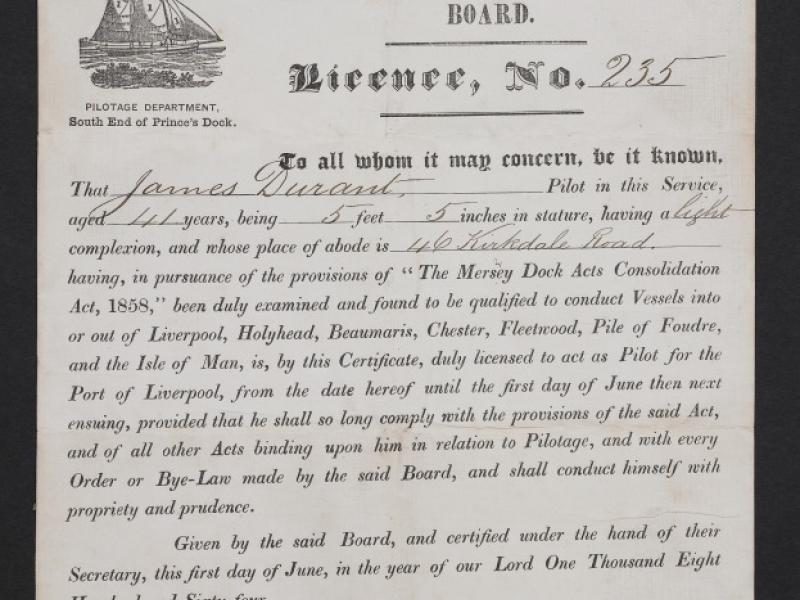 BOARD.
Licence, No. 235
PILOTAGE DEPARTMENT,
South End of Prince's Dock.
To all whom it may concern, be it known,
That James Durant, Pilot in this Service,
aged 41 years, being 5 feet 5 inches in stature, having a light
complexion, and whose place of abode is 46 Kirkdale Road.
having, in pursuance of the provisions of "The Mersey Dock Acts Consolidation
Act, 1858," been duly examined and found to be qualified to conduct Vessels into
or out of Liverpool, Holyhead, Beaumaris, Chester, Fleetwood, Pile of Foudre,
and the Isle of Man, is, by this Certificate, duly licensed to act as Pilot for the
Port of Liverpool, from the date hereof until the first day of June then next
ensuing, provided that he shall so long comply with the provisions of the said Act,
and of all other Acts binding upon him in relation to Pilotage, and with every
Order or Bye-Law made by the said Board, and shall conduct himself with
propriety and prudence.
Given by the said Board, and certified under the hand of their
Secretary, this first day of June, in the year of our Lord One Thousand Eight
Hundred and Sixty-four